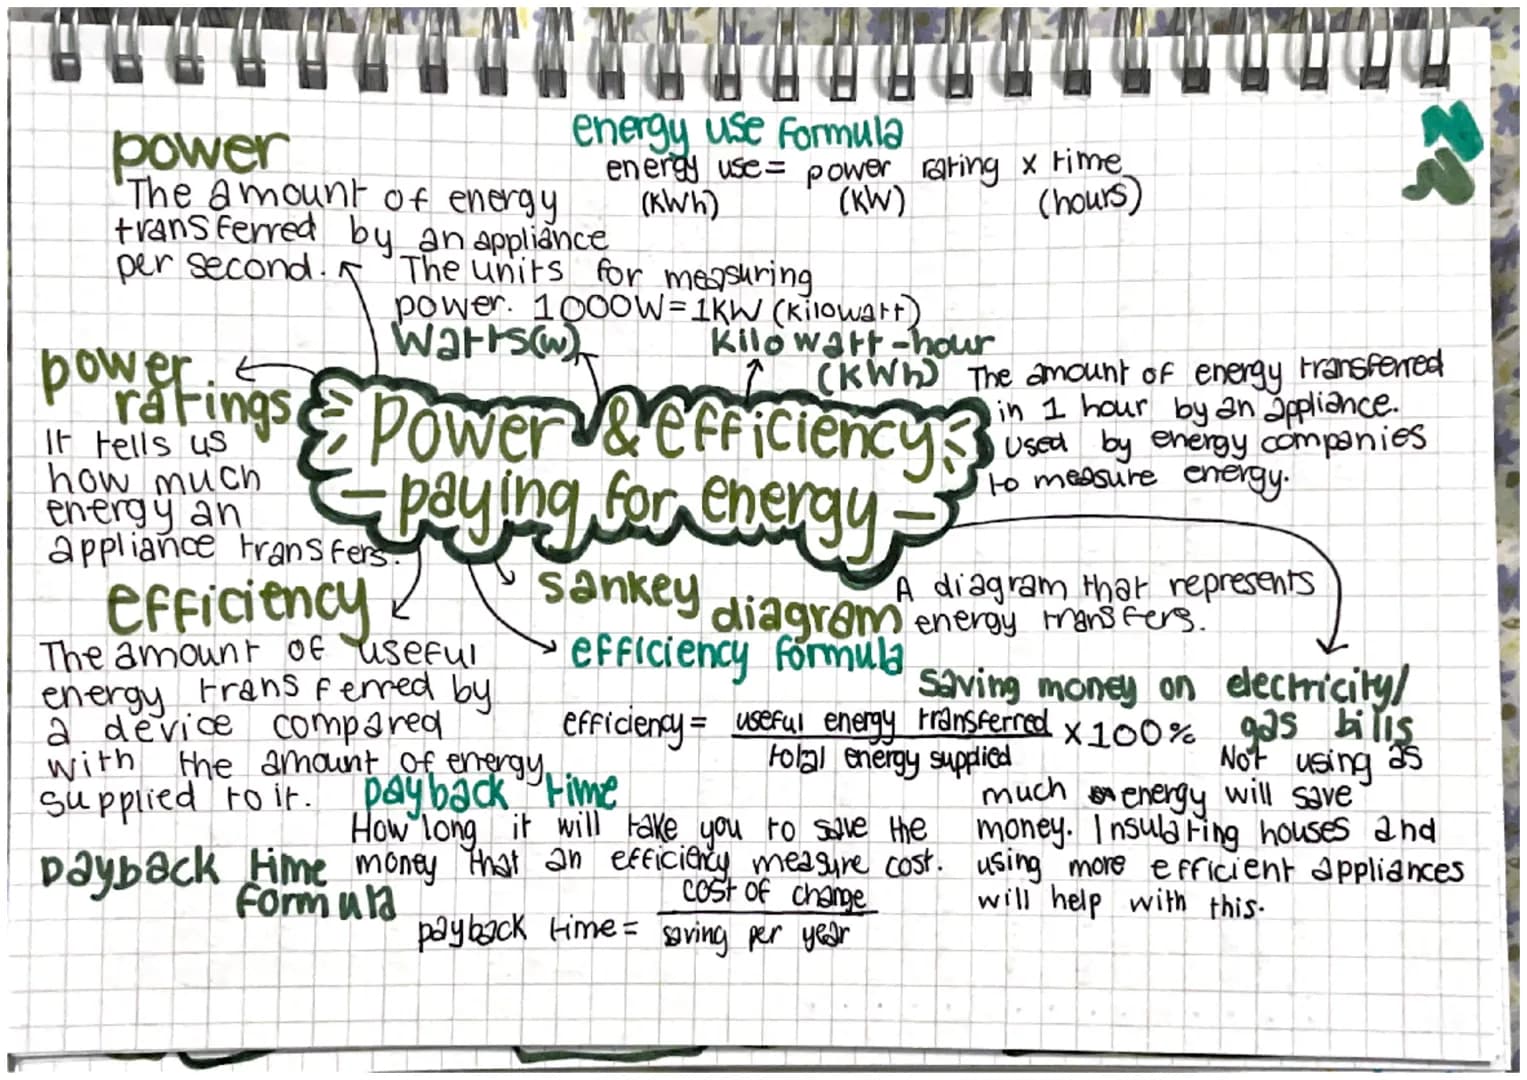 power
The amount of energy
transferred by an appliance
per second.
energy use formula
energy use = power rating x time
(KWh) (KW) (hours)
The units for measuring
power. 1000W = 1KW (Kilowatt)
Watts(w)
Kilowatt-hour
(KWh)
The amount of energy transferred
in 1 hour by an appliance.
Used by energy companies
to measure energy.
power
ratings
It tells us
how much
energy an
appliance transfers.
Power & efficiency
- paying for energy -
efficiency
The amount of useful
energy transferred by
a device compared
with the amount of energy
supplied to it.
sankey
diagram
A diagram that represents
energy transfers.
efficiency formula
efficiency = useful energy transferred x100%
total energy supplied
saving money on electricity/
gas bills
Not using as
much energy will save
money. Insulating houses and
using more efficient appliances
will help with this.
payback time
How long it will take you to save the
money that an efficiency measure cost.
payback time
formula
cost of change
payback time = saving per year